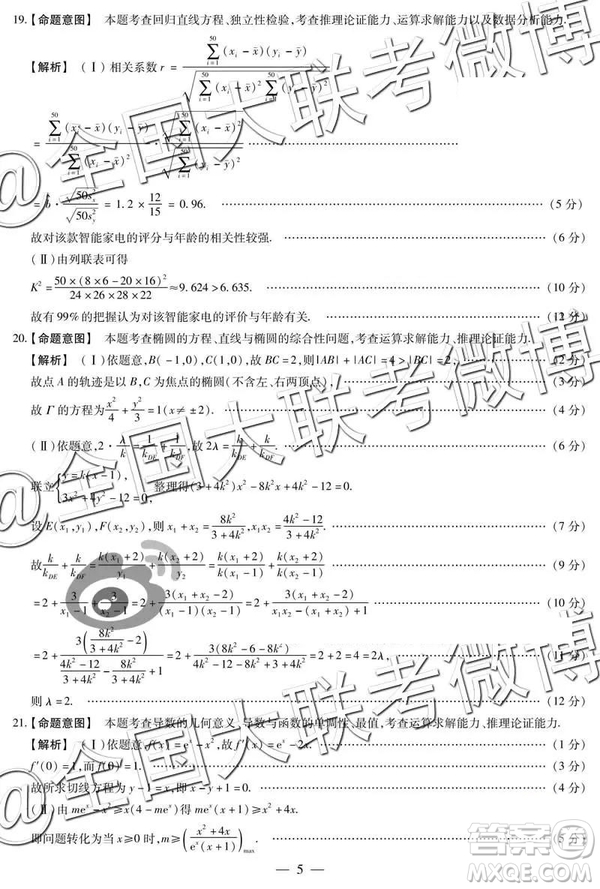 19.【命题意图】 本题考查回归直线方程、独立性检验,考查推理论证能力、运算求解能力以及数据分析能力.
【解析】 (Ⅰ)相关系数 r = \frac{\sum_{i=1}^{50}(x_i-\bar{x})(y_i-\bar{y})}{\sqrt{\sum_{i=1}^{50}(x_i-\bar{x})^2\sum_{i=1}^{50}(y_i-\bar{y})^2}}
= \frac{\sum_{i=1}^{50}(x_i-\bar{x})(y_i-\bar{y})}{\sum_{i=1}^{50}(x_i-\bar{x})^2} · \frac{\sqrt{\sum_{i=1}^{50}(x_i-\bar{x})^2}}{\sqrt{\sum_{i=1}^{50}(y_i-\bar{y})^2}} ……
= \hat{b} · \frac{\sqrt{50s_x^2}}{\sqrt{50s_y^2}} = 1.2 × \frac{12}{15} = 0.96. …… (5分)
故对该款智能家电的评分与年龄的相关性较强. …… (6分)
(Ⅱ)由列联表可得
K² = \frac{50×(8×6-20×16)²}{24×26×28×22} ≈ 9.624 > 6.635. …… (10分)
故有99%的把握认为对该智能家电的评价与年龄有关. …… (12分)
20.【命题意图】 本题考查椭圆的方程、直线与椭圆的综合性问题,考查运算求解能力、推理论证能力.
【解析】 (Ⅰ)依题意,B(-1,0),C(1,0),故BC=2,则|AB|+|AC|=4>|BC|=2, …… (2分)
故点A的轨迹是以B,C为焦点的椭圆(不含左、右两顶点), …… (4分)
故Γ的方程为\frac{x²}{4}+\frac{y²}{3}=1(x≠±2). …… (4分)
(Ⅱ)依题意,2·\frac{λ}{k}=\frac{1}{k_{DE}}+\frac{1}{k_{DF}},故2λ=\frac{k}{k_{DE}}+\frac{k}{k_{DF}}. …… (6分)
联立{y=k(x-1), 3x²+4y²-12=0, 整理得(3+4k²)x²-8k²x+4k²-12=0.
设E(x₁,y₁),F(x₂,y₂),则x₁+x₂=\frac{8k²}{3+4k²},x₁x₂=\frac{4k²-12}{3+4k²}. …… (7分)
故\frac{k}{k_{DE}}+\frac{k}{k_{DF}}=\frac{k(x₁+2)}{y₁}+\frac{k(x₂+2)}{y₂}=\frac{k(x₁+2)}{k(x₁-1)}+\frac{k(x₂+2)}{k(x₂-1)} …… (9分)
=2+\frac{3}{x₁-1}+\frac{3}{x₂-1}=2+\frac{3(x₁+x₂-2)}{(x₁-1)(x₂-1)}=2+\frac{3(x₁+x₂-2)}{x₁x₂-(x₁+x₂)+1} …… (10分)
=2+\frac{3(\frac{8k²}{3+4k²}-2)}{\frac{4k²-12}{3+4k²}-\frac{8k²}{3+4k²}+1}=2+\frac{3(8k²-6-8k²)}{4k²-12-8k²+3+4k²}=2+2=4, …… (11分)
则λ=2. …… (12分)
21.【命题意图】 本题考查导数的几何意义、导数与函数的单调性、最值,考查运算求解能力、推理论证能力.
【解析】 (Ⅰ)依题意,f(x)=eˣ-x²,故f′(x)=eˣ-2x. …… (1分)
f′(0)=1,而f(0)=1. …… (3分)
故所求切线方程为y-1=x,即y=x+1. …… (4分)
(Ⅱ)由meˣ≥x(4-meˣ)得meˣ(x+1)≥x²+4x.
即问题转化为当x≥0时,m≥[\frac{x²+4x}{eˣ(x+1)}]_{max}. …… (5分)
— 5 —
@全国大联考微博
@全国大联考微博
答案圈
MXQE.COM